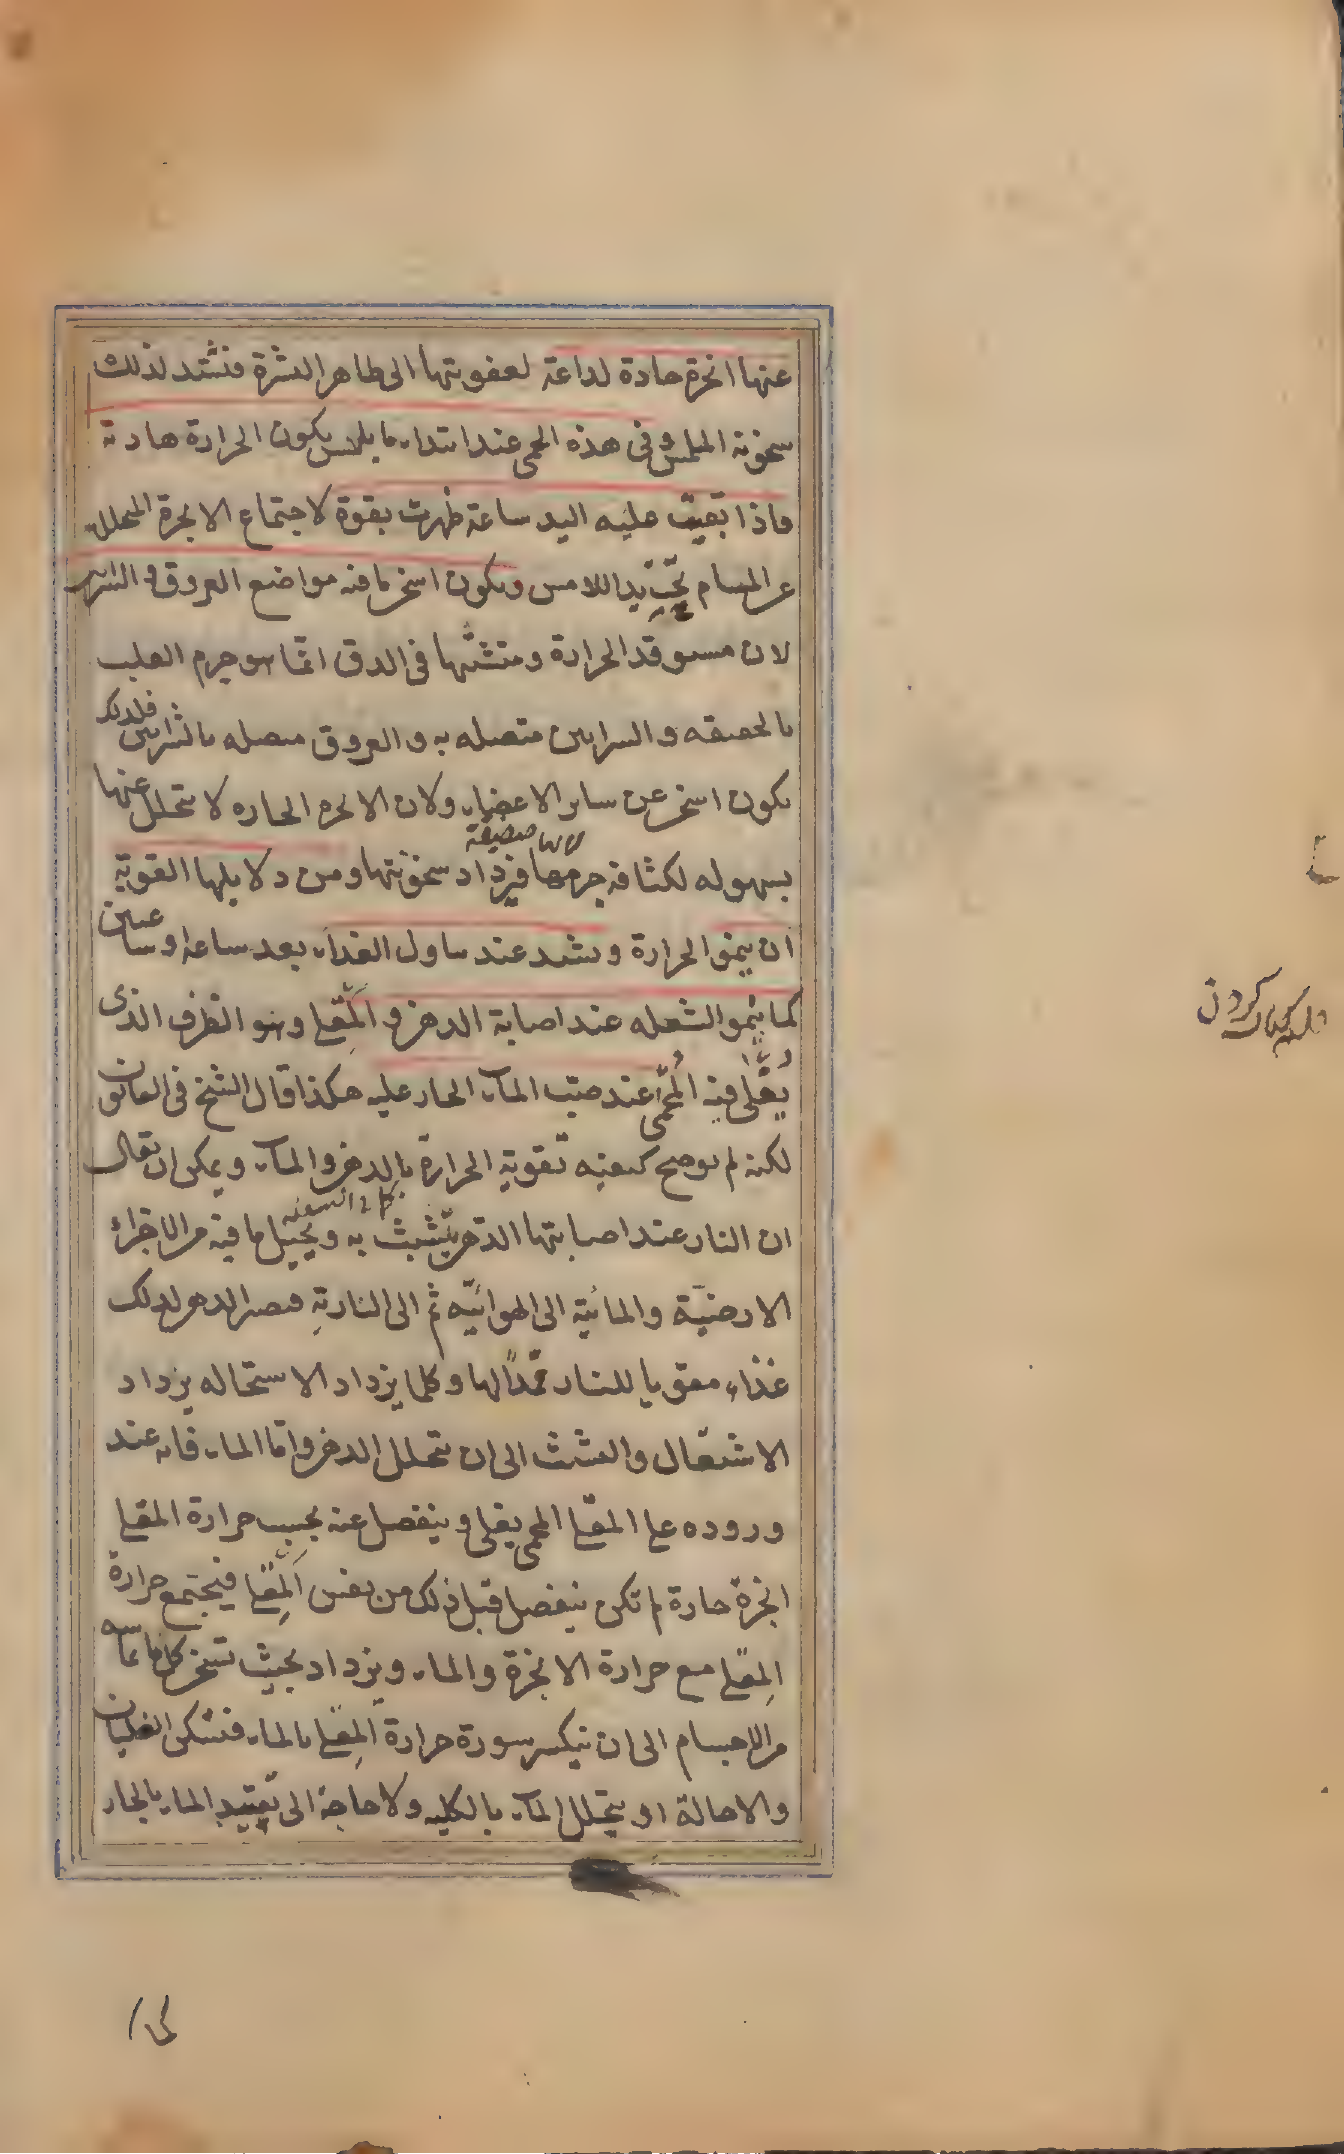 عنها ابخرة حادة لداعة لعفونتها الى ظاهر البشرة فتشتد لذلك
سخونة الملمس وفى هذه الحمى عند ابتداء ما يلمس يكون الحرارة هادئة
فاذا بقيت عليه اليد ساعة ظهرت بقوة لاجتماع الابخرة المتحللة
عن المسام تحت يد اللامس ويكون اسخن ما فيه مواضع العروق والشرايين
لان مستوقد الحرارة ومتشبثها فى الدق انما هو جرم القلب
بالحقيقه والشرايين متصله به والعروق متصله بالشرايين فلذلك
يكون اسخن عن ساير الاعضاء ولان الابخره الحاره لا تتحلل عنها
لانها صفيقة
بسهوله لكثافة جرمها فيزداد سخونتها ومن دلايلها القوية
ان ينمو الحرارة ويشتد عند تناول الغداء بعد ساعة او ساعتين
كما ينمو الشعله عند اصابة الدهن والمقلى وهو الظرف الذى
يُقلى فيه المُحمّى عند صبّ المآء الحار عليه هكذا قال الشيخ فى القانون
لكنه لم يوضح كيفيه تقوية الحرارة بالدهن والمآء ويمكن ان يقال
ان النار عند اصابتها الدهن يتشبث به ويحيل ما فيه من الاجزاء
الارضيّة والمائية الى الهوائيّه ثم الى النارية فيصير الدهن لذلك
غذاء مقويا للنار ممدّا لها وكلما يزداد الاستحاله يزداد
الاشتعال والتشبث الى ان يتحلل الدهن واما الماء فانه عند
وروده على المقلى المحمى يغلى وينفصل عنه بحسب حرارة المقلى
ابخرة حارة لم تكن ينفصل قبل ذلك من نفس المِقلى فيجتمع حرارة
المِقلى مع حرارة الابخرة والماء ويزداد بحيث تسخن كل ما يماسه
من الاجسام الى ان ينكسر سورة حرارة المِقلى بالماء فتسكن الغليان
والاحالة او يتحلل المآء بالكليه ولا حاجة الى تقييد الماء بالحار
كردن